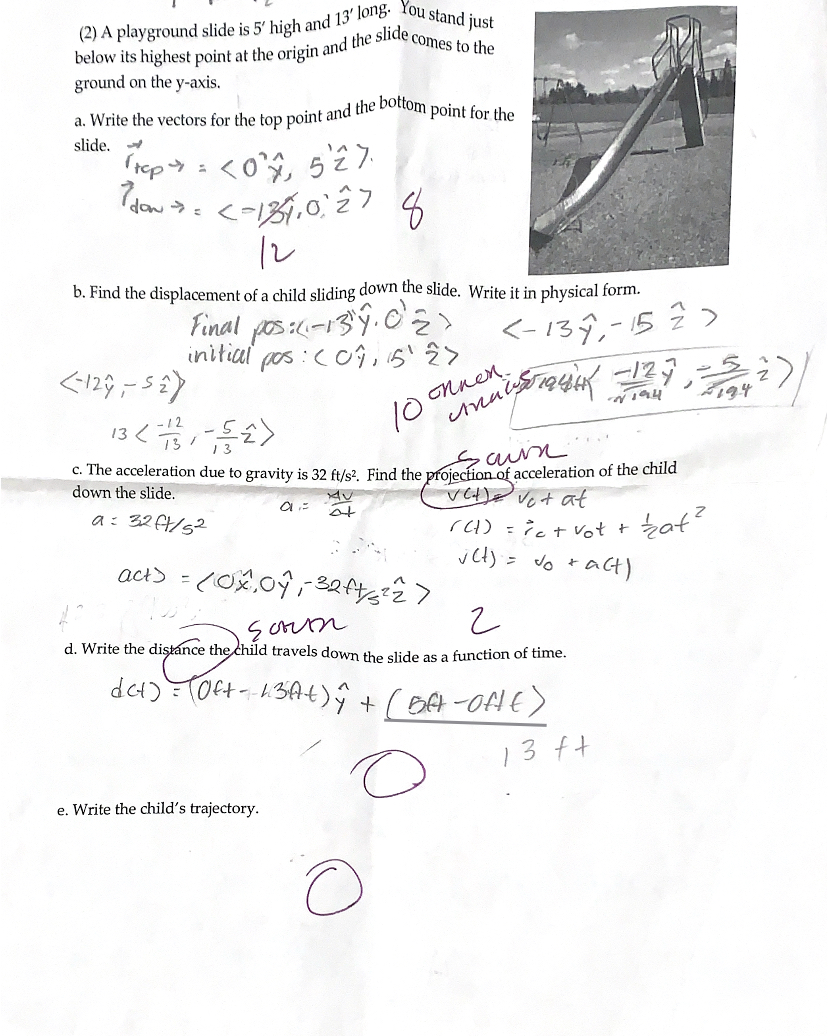 (2) A playground slide is 5' high and 13' long. You stand just
below its highest point at the origin and the slide comes to the
ground on the y-axis.
a. Write the vectors for the top point and the bottom point for the
slide.
r top → = <0'ŷ, 5'ẑ>.
r dow → = <-13ŷ, 0,' ẑ>
8
12
b. Find the displacement of a child sliding down the slide. Write it in physical form.
Final pos: <-13'ŷ, 0'ẑ>
<-13ŷ, -15 ẑ>
initial pos: <0ŷ, 15' ẑ>
<-12ŷ, -5ẑ>
10
-12/√194 ŷ, -5/√194 ẑ>
13 <-12/13, -5/13 ẑ>
c. The acceleration due to gravity is 32 ft/s². Find the projection of acceleration of the child
down the slide.
a = Δv/Δt
v(t) = v₀ + at
a = 32ft/s²
r(t) = r₀ + v₀t + ½at²
v(t) = v₀ + a(t)
a(t) = <0x̂, 0ŷ, -32ft/s²ẑ>
2
d. Write the distance the child travels down the slide as a function of time.
d(t) = (0ft - 13ft)ŷ + (5ft - 0ft
13 ft
0
e. Write the child's trajectory.
0